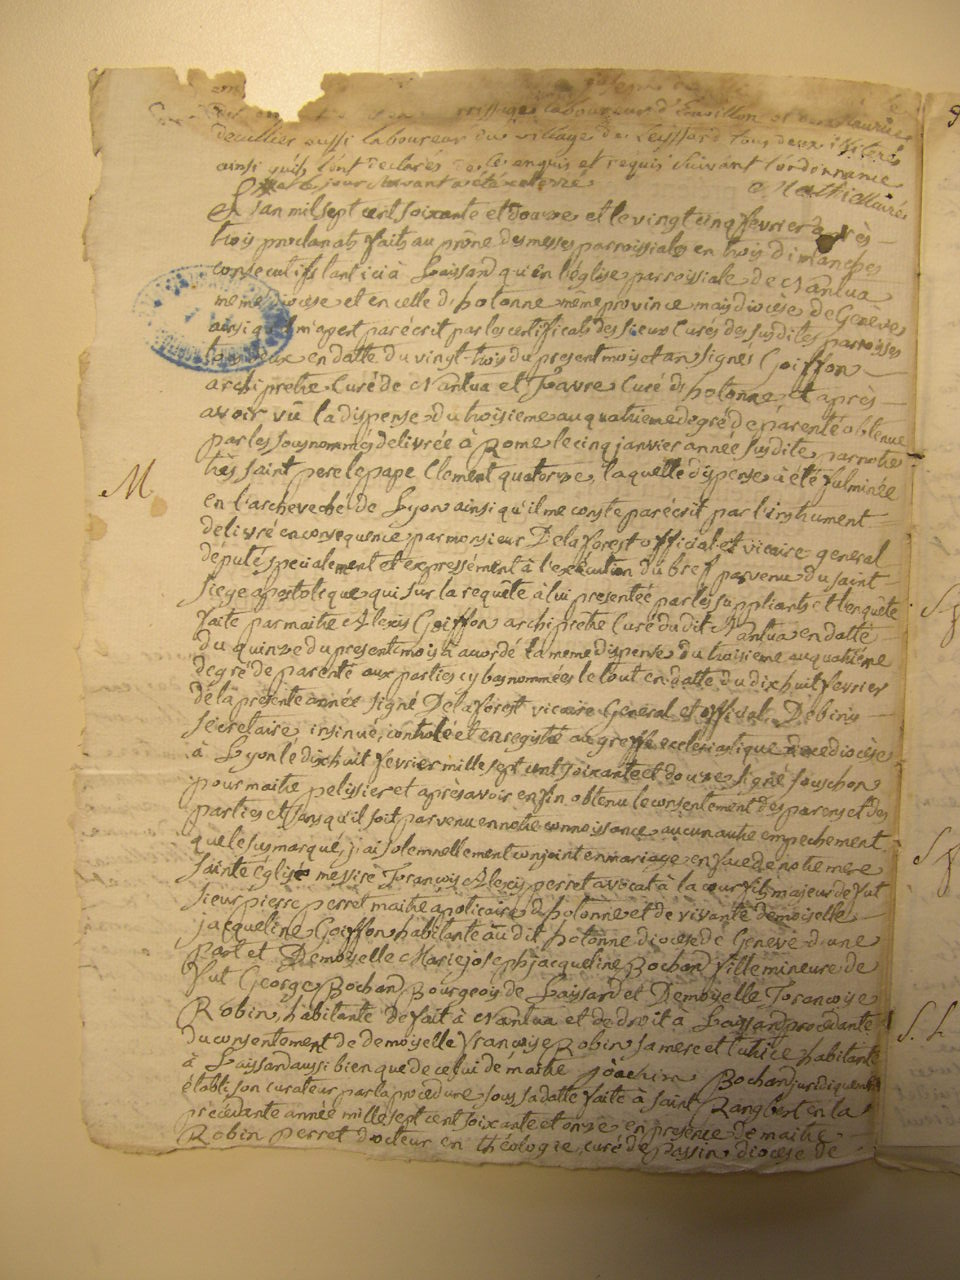 laboureur d'
decullier aussi laboureur du village de Leissard tous deux illiterés
ainsi quils l'ont declarés de ce enquis et requis suivant l'ordonnance
Mathieu curé
L'an mil sept cent soixante et douze et le vingt cinq fevrier après
trois proclamats faits au prône des messes parroissiales en trois dimanches
consecutifs tant ici à Laissard qu'en l'église parroissiale de Nantua
meme diocese et en celle d'hotonne meme province mais diocese de Geneve
ainsi qu'il m'apert par écrit par les certificats des sieurs Curés des susdites parroisses
tous deux en datte du vingt-trois du present mois et an signés Goiffon
archipretre Curé de Nantua et favre Curé d'hotonne et après
avoir vû la dispense du troisieme au quatrieme degré de parenté obtenue
par les sousnommés delivrée à Rome le cinq janvier année susdite par notre
très saint pere le pape Clement quatorze, laquelle dispense a été fulminée
M
en l'archeveché de Lyon ainsi qu'il me conste par écrit par l'instrument
delivré en consequence par monsieur Delaforest official et vicaire general
deputé specialement et expressément à l'exécution du bref parvenu du saint
siege apostolique qui sur la requête à lui presentée par les suppliants et l'enquête
faite par maitre Alexis Goiffon archipretre Curé dudit Nantua en datte
du quinze du present mois à acordé la meme dispense du troisieme au quatrième
degré de parenté aux parties cy bas nommées le tout en datte du dix huit fevrier
de la présente année signé Delaforest vicaire General et official, Debiny
secretaire insinué, controlé et enregistré au greffe ecclesiastique diocèse
à Lyon le dix huit fevrier mille sept cent soixante et douze signé souchon
pour maitre pelissier et après avoir enfin obtenu le consentement des parens et des
parties et sans qu'il soit parvenu en notre connoissance aucun autre empechement
que le susmarqué, j'ai solemnellement conjoint en mariage en face de notre mere
sainte église messire François Alexis perret avocat à la cour fils majeur de fut
sieur pierre perret maitre apoticaire d'hotonne et de vivante demoiselle
jacqueline Goiffon habitante au dit hotonne diocese de Geneve d'une
part et Demoiselle Marie joseph jacqueline Bochard fille mineure de
fut George Bochard Bourgeois de Laissard et Demoiselle Françoise
Robin, habitante de fait à Nantua et de droit à Laissard procedante
du consentement de demoiselle françoise Robin sa mere et tutrice habitante
à Laissard aussi bien que de celui de maitre joachim Bochard juridiquement
établi son curateur par la procedure sous sa datte faite à saint Rangbert en la
precedante année mille sept cent soixante et onze en presence de maitre
Robin perret docteur en théologie, curé de Passin diocese de